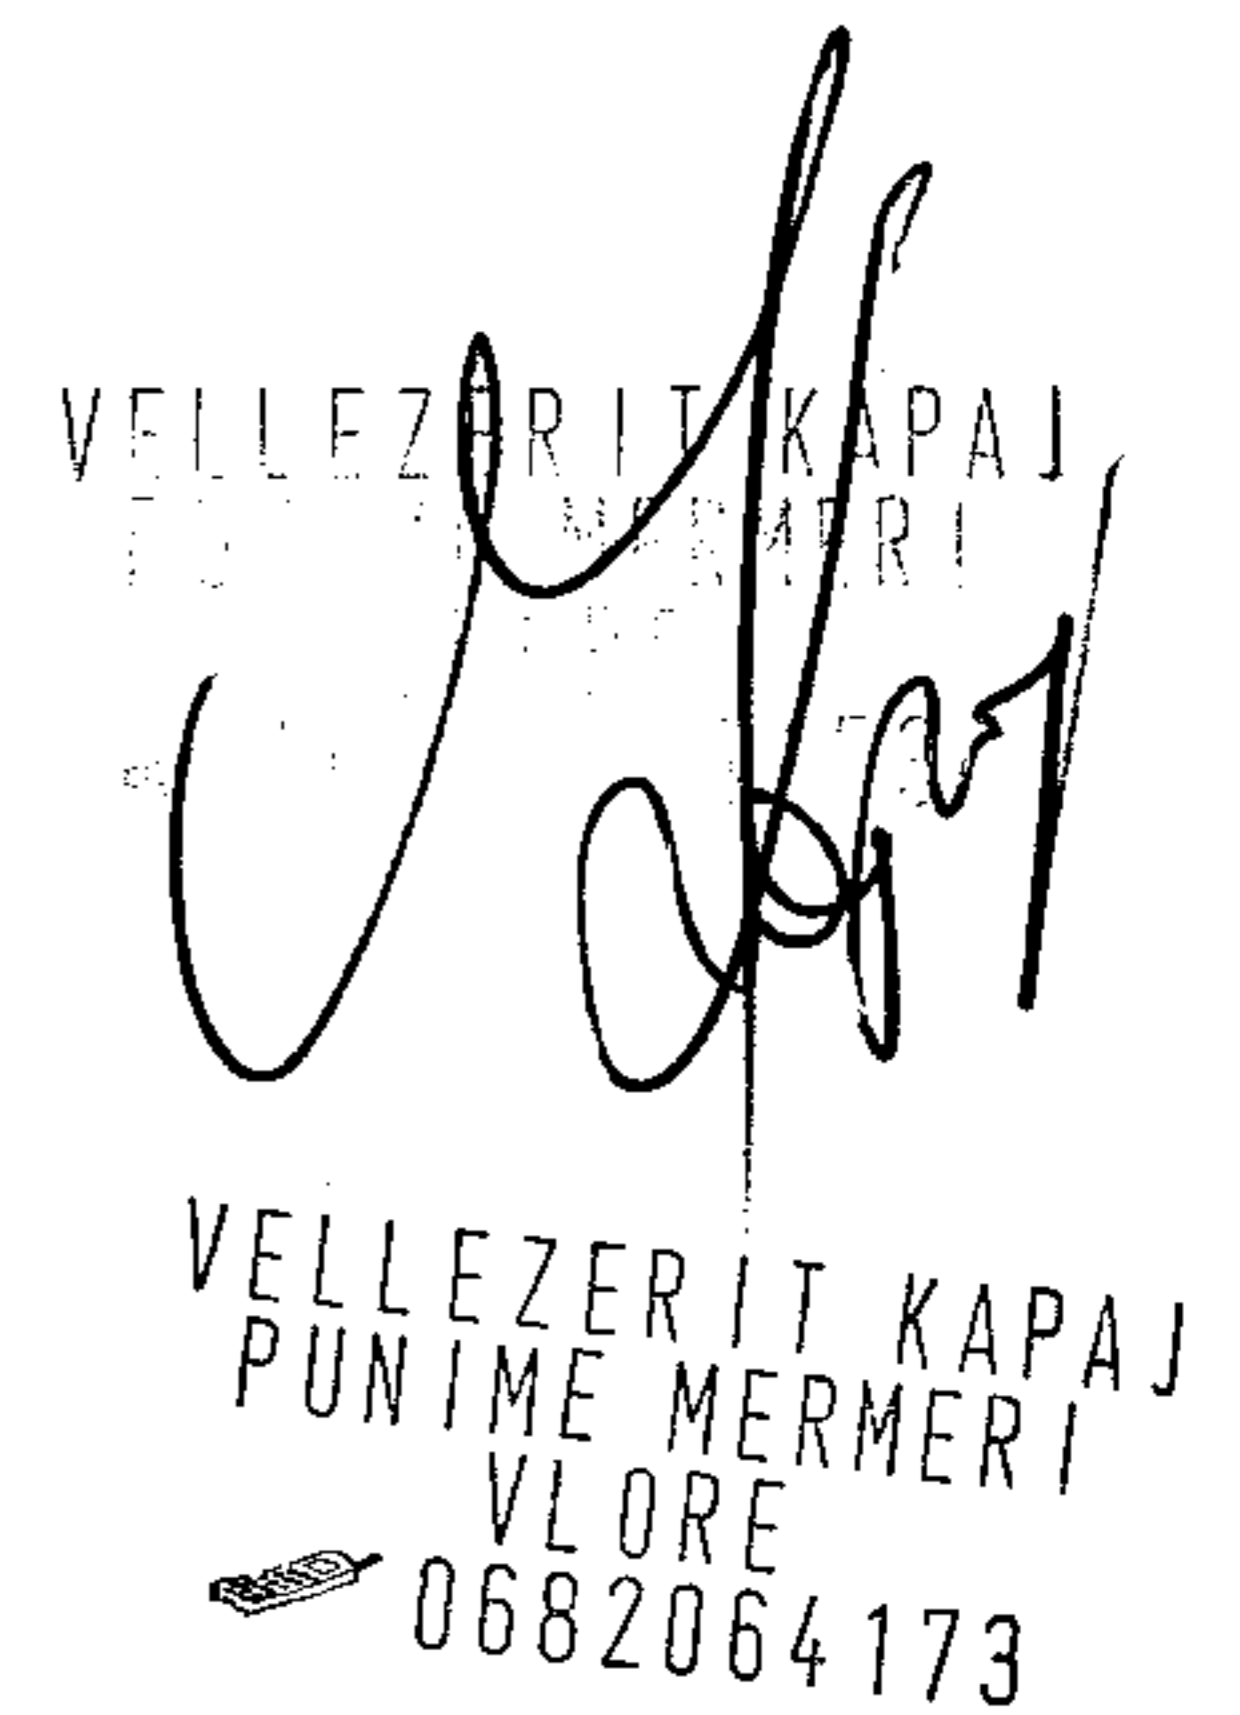 VELLEZERIT KAPAJ
MERMERI
VELLEZERIT KAPAJ
PUNIME MERMERI
VLORE
0682064173